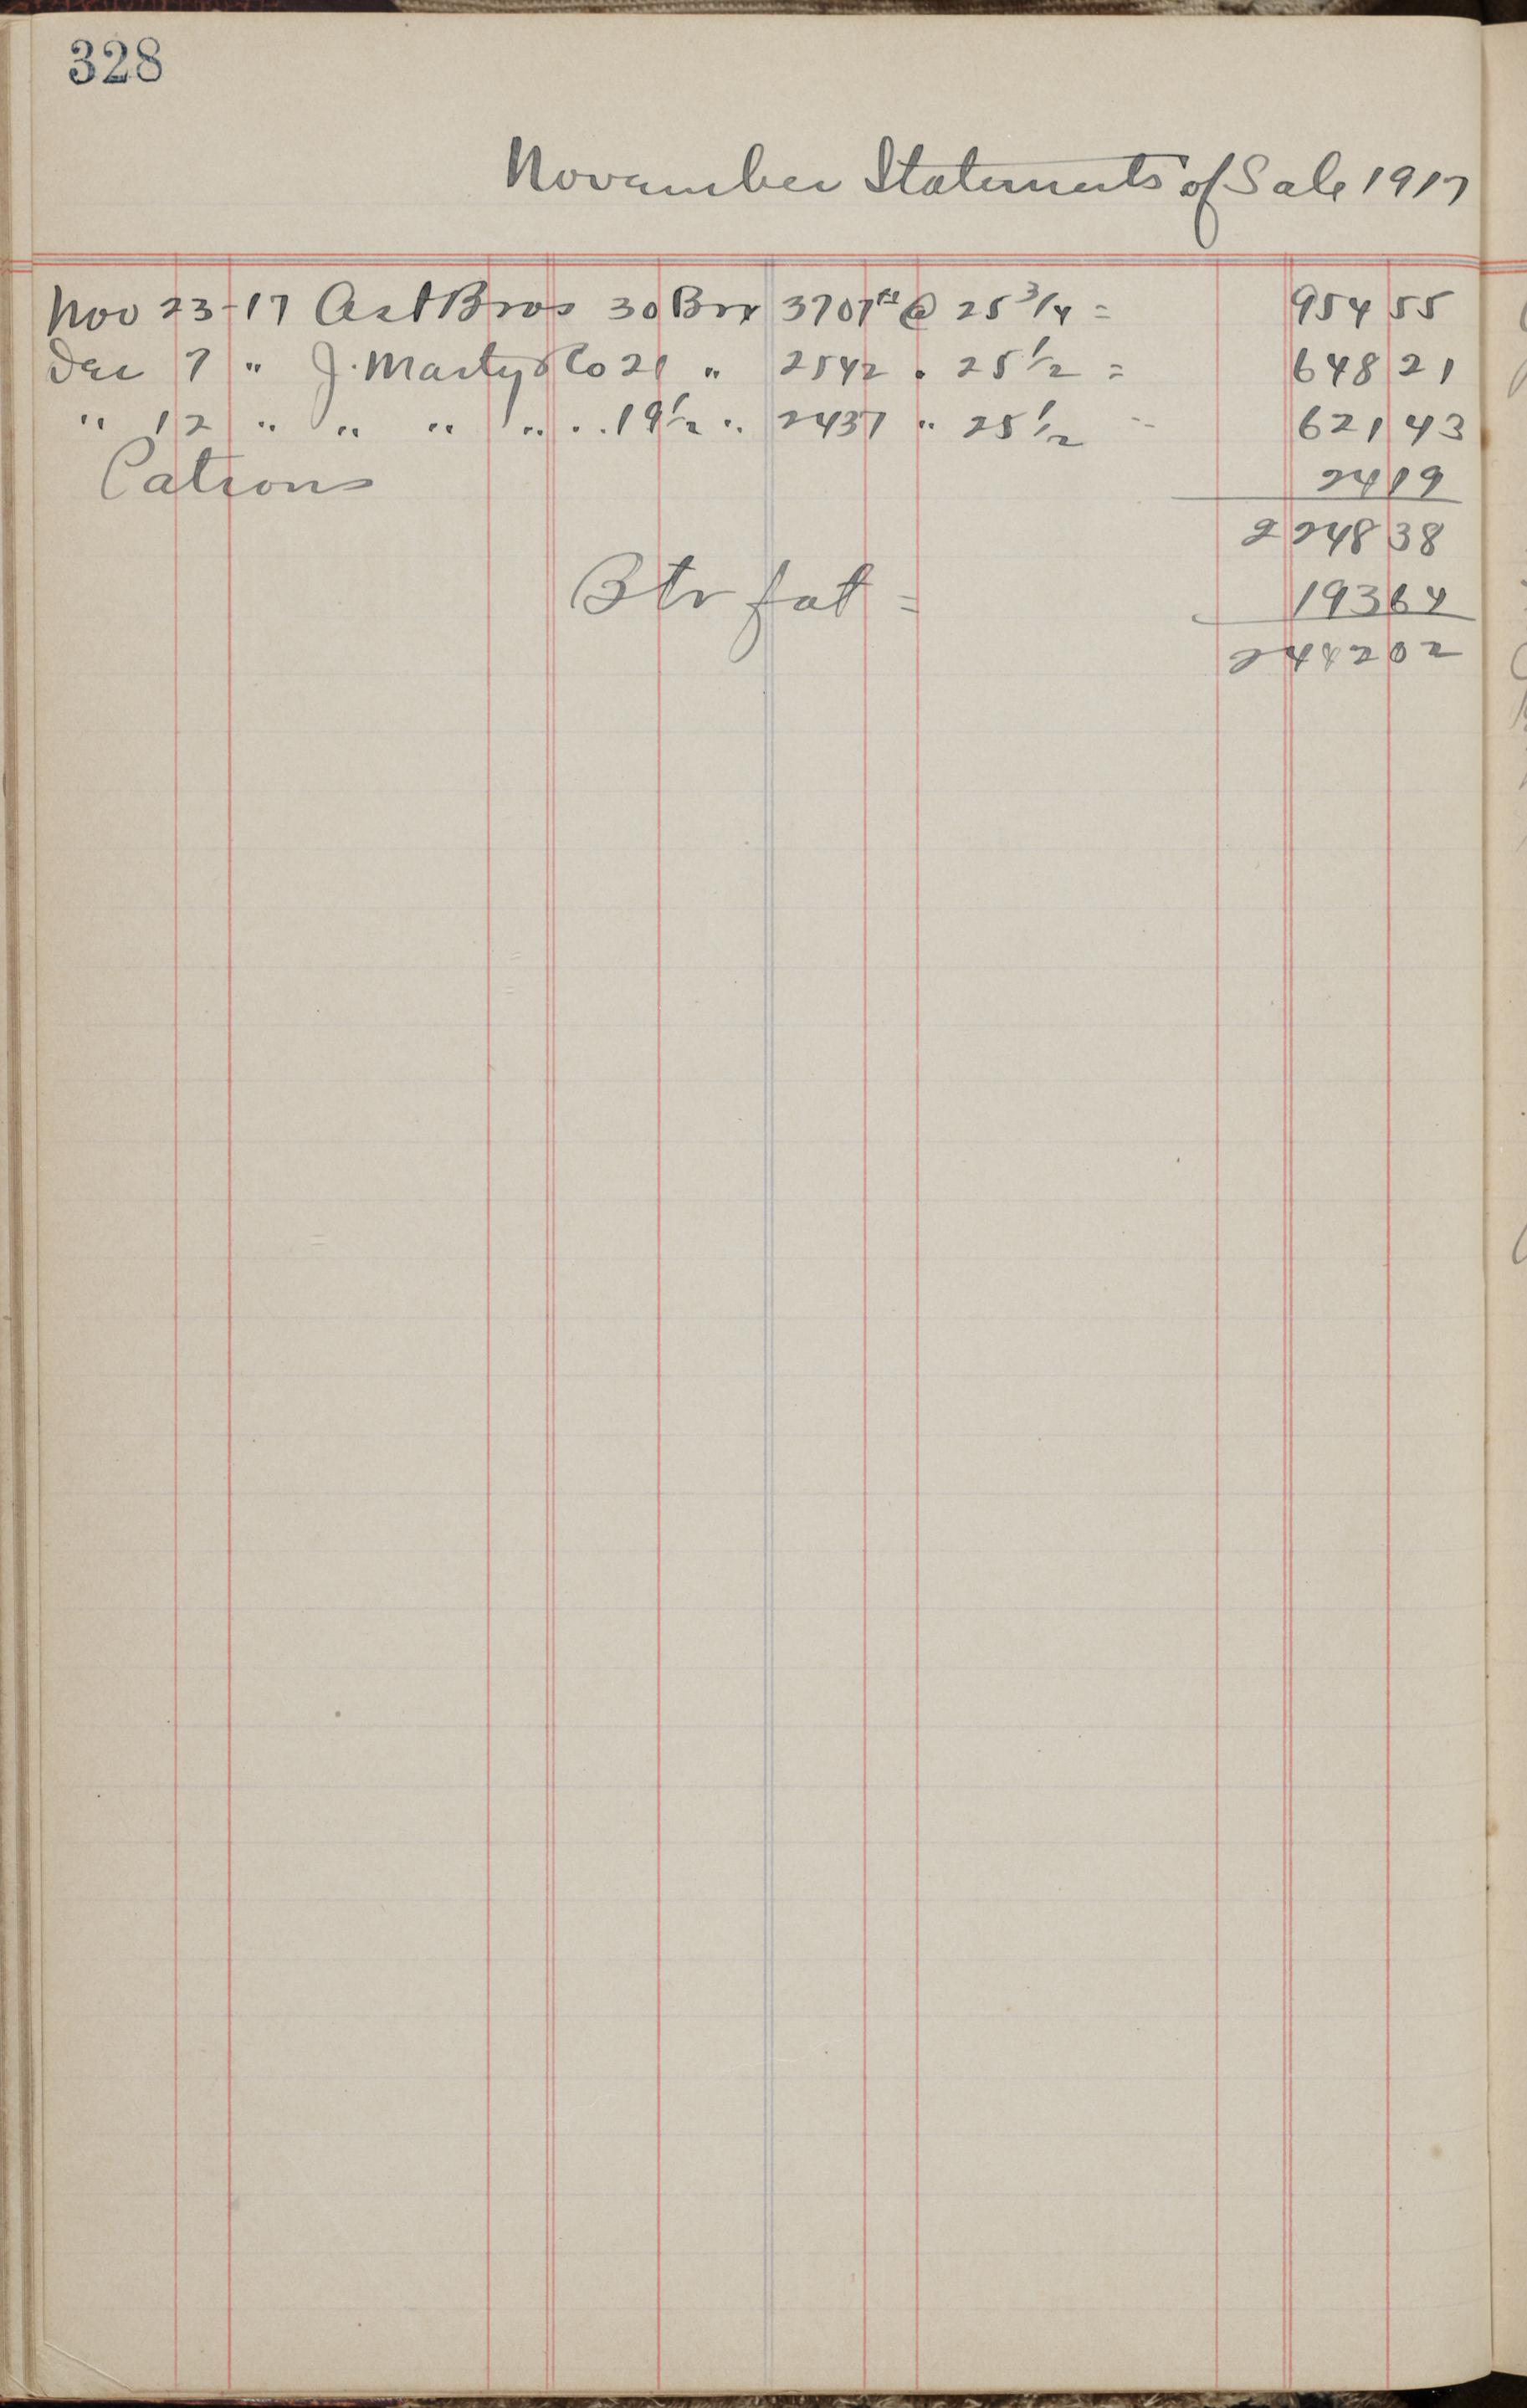 328
November Statements of Sale 1917
Nov 23-17 Ast Bros 30 Box 3707# @ 25 3/4 = 954 55
Dec 7 " J. Marty & Co 21 " 2542 " 25 1/2 = 648 21
" 12 " " " " " 19 1/2 " 2437 " 25 1/2 - 621 43
Patrons 24 19
2248 38
Btr fat = 193 64
2442 02